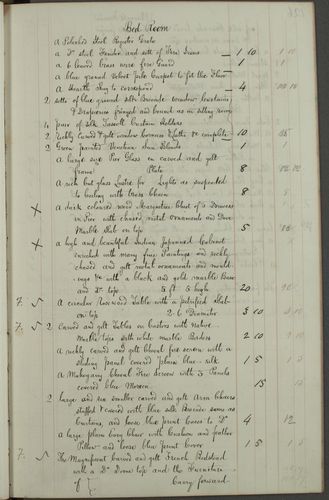 Bed Room
A Polished Steel Register Grate
A Do steel Fender and sett of Fire Irons 1 10
A 6 leaved Brass wire fire Guard 1
A blue ground Velvet pile Carpet to fit the Floor
A Hearth Rug to correspond 4
2 setts of blue ground silk Brocade window Curtains
& Draperies fringed and bound as in sitting room
4 pair of silk Tassell Curtain Holders
2 Richly carved & gilt window cornices & Laths &c complete 10
2 Green painted Venetian Sun Blinds 1
A large size Pier Glass in carved and gilt
frame Plate 8
A rich cut glass Lustre for Lights as suspended
to Ceiling with brass 8
A dark coloured wood Marqueterie Chest of 5 Drawers
in Pier with chased metal ornaments and Dove
Marble slab on top 5
A high and beautiful Indian Japanned Cabinet
enriched with many fine Paintings and richly
chased and gilt metal ornaments and mould-
ings &c with a black and gold marble Base
and Do top 5 ft 5 high 20
7. 5 A circular Rosewood Table with a petrified slab
on top 2.6 Diameter 3 10
7. 5 2 Carved and gilt Tables on castors with
Marble tops with white marble Borders 2 10
A richly carved and gilt cheval fire screen with a
sliding panel covered plain blue silk 1 5
A Mahogany cheval Fire Screen with 3 Panels
covered blue Moreen 15
2 large size smaller carved and gilt Arm Chairs
stuffed & covered with blue silk Brocade same as
Curtains, and loose blue print cases to Do 4
A large plain easy Chair with Cushion and feather
Pillow and loose blue print cover 1 5
7. 5 The Magnificent carved and gilt French Bedstead
with a Do Dome top and the Furniture
of Carry forward